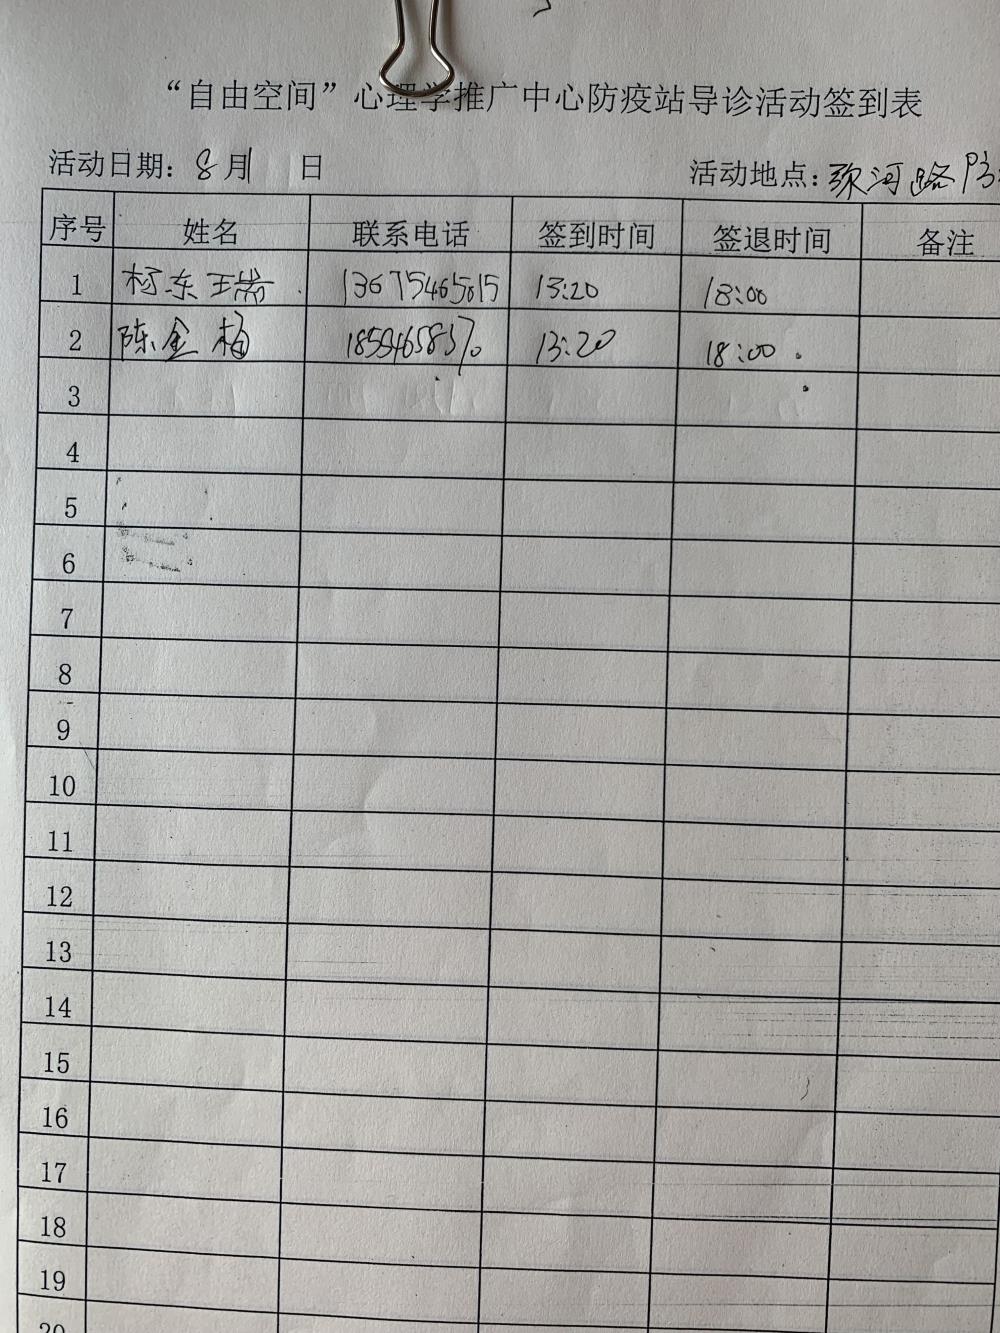 “自由空间”心理学推广中心防疫站导诊活动签到表
活动日期：8月 日 活动地点：弥河路防
序号 姓名 联系电话 签到时间 签退时间 备注
1 13:20 18:00
2 陈金梅 13:20 18:00
3
4
5
6
7
8
9
10
11
12
13
14
15
16
17
18
19
20